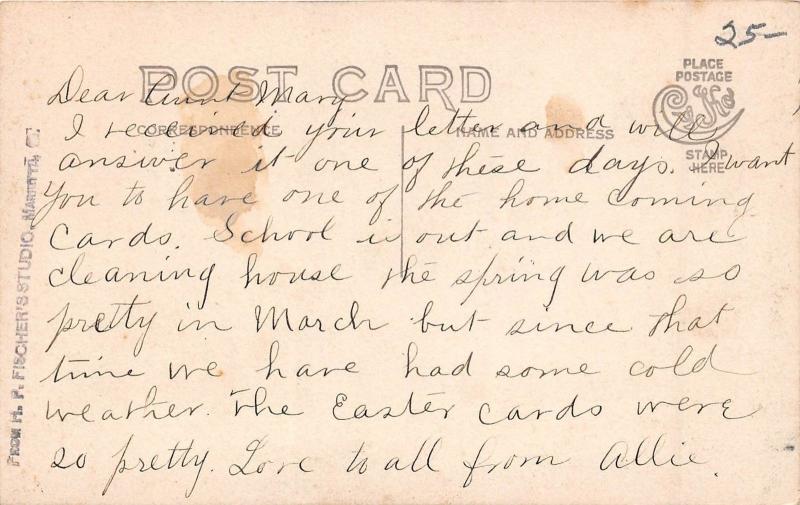 25-
POST CARD
CORRESPONDENCE
NAME AND ADDRESS
PLACE
POSTAGE
STAMP
HERE
Dear Aunt Mary
I received your letter and will
answer it one of these days. I want
you to have one of the home coming
cards. School is out and we are
cleaning house the spring was so
pretty in March but since that
time we have had some cold
weather. The Easter cards were
so pretty. Love to all from Allie.
FROM H. P. FISCHER'S STUDIO, MARIETTA, O.